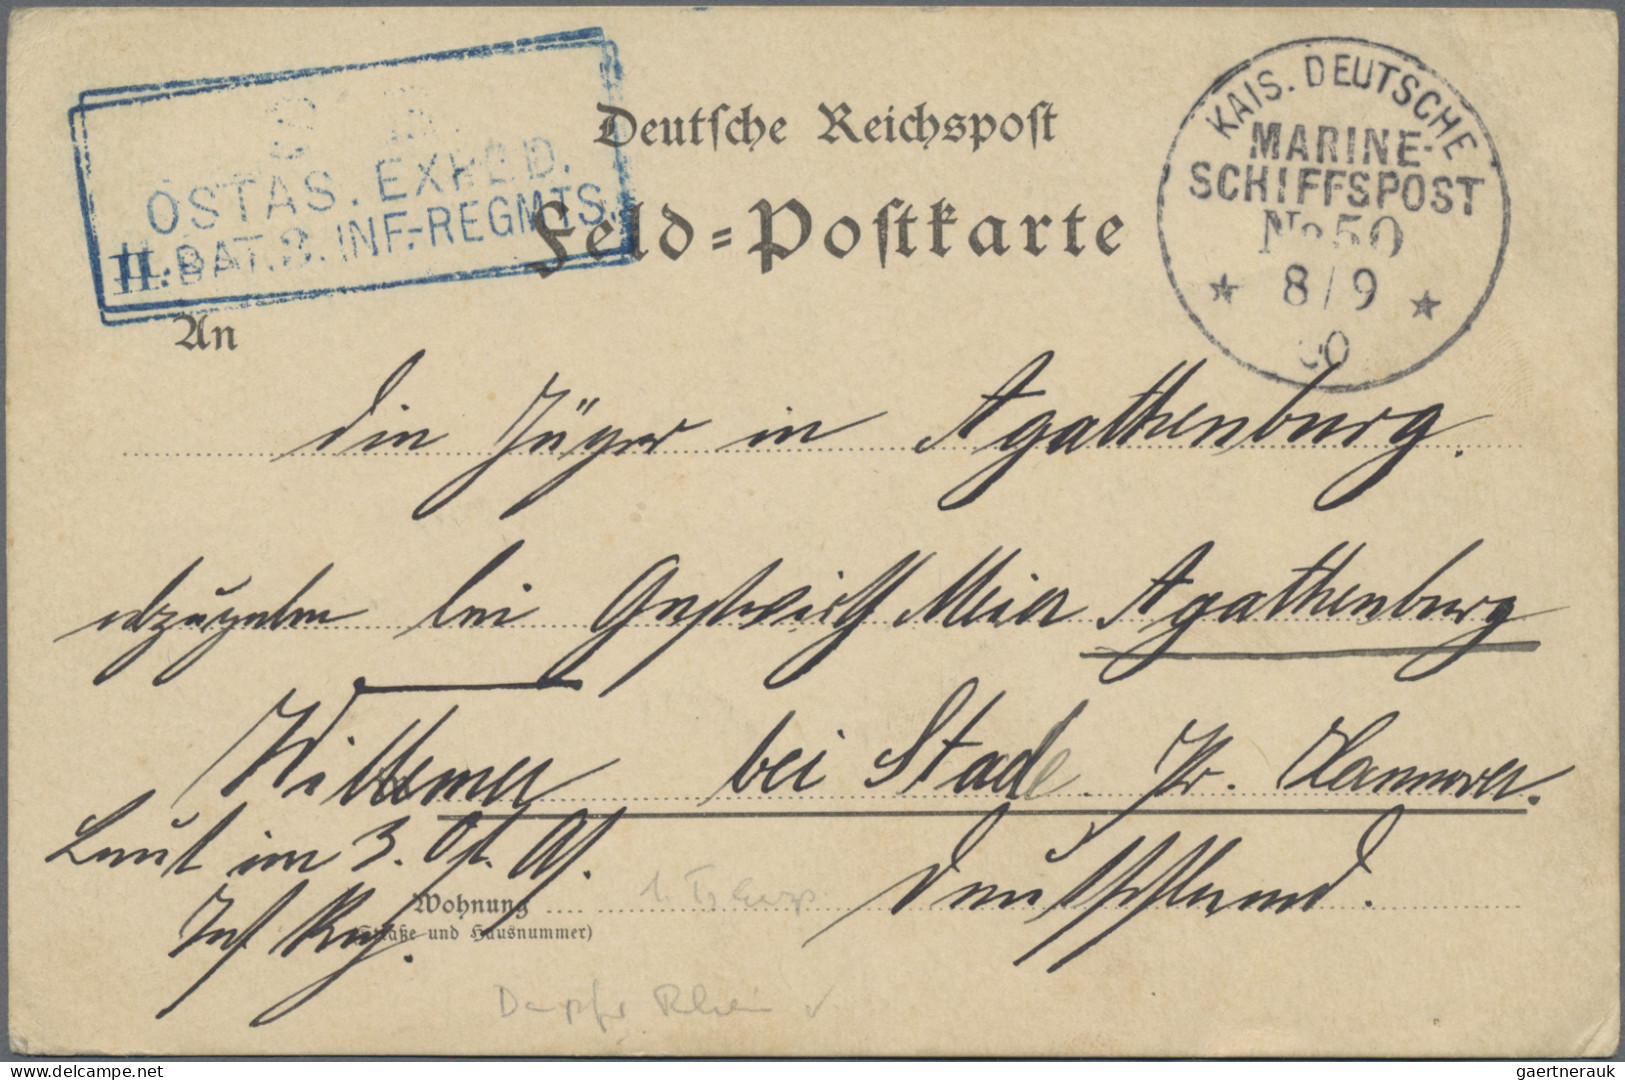 S. B.
OSTAS. EXPED.
II. BAT. 3. INF.-REGMTS.
Deutsche Reichspost
Feld-Postkarte
KAIS. DEUTSCHE
MARINE-
SCHIFFSPOST
No 50
8/9
00
An
die Jäger in Agathenburg.
abzugeben bei Gastwirth Meier Agathenburg
bei Stade Pr. Hannover.
Leut im 3. Ost. As.
Inf Reg.
Deutschland.
Wohnung
(Straße und Hausnummer)
Dampfer Rhein
delcampe.net
gaertnerauk